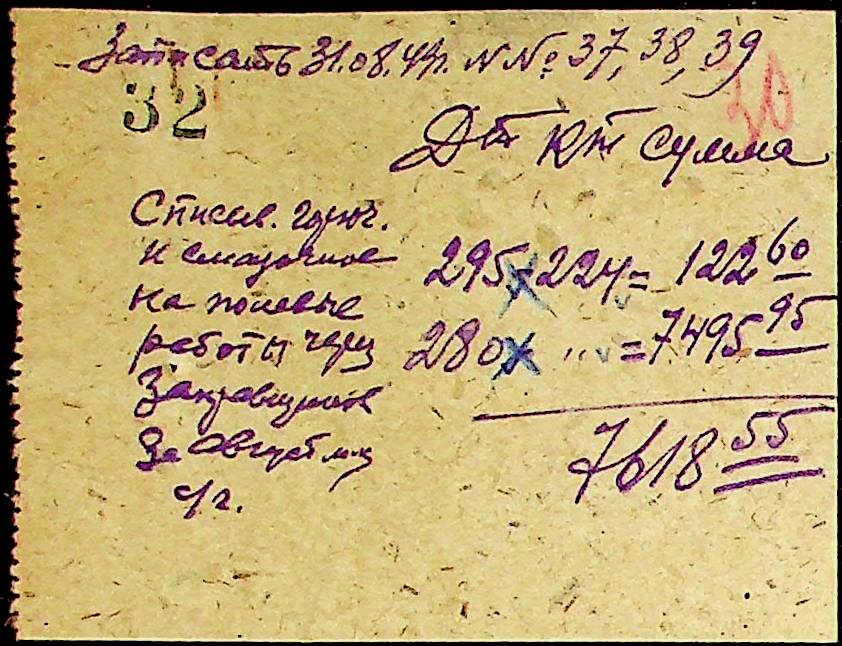 Записать 31.08.44г. N№ 37, 38, 39
32
30
Дт Кт Сумма
Списыв. горюч.
и смазочное 295 x 224 = 122 60
на полевые
работы через 280 x " = 7495 95
Заправщиков
7618 55
за август м-ц
с/г.